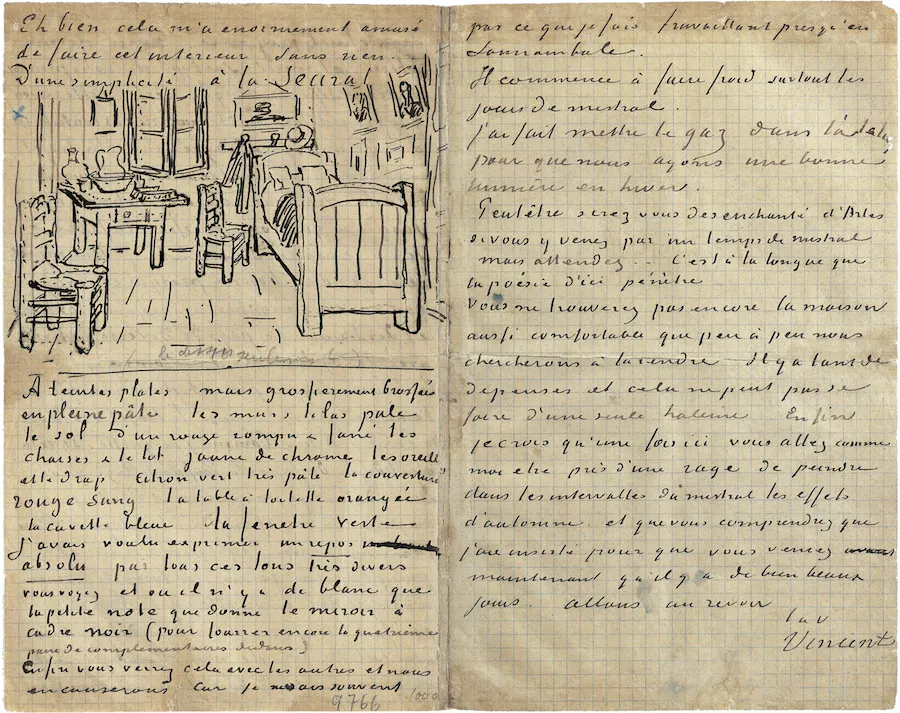 Eh bien cela m'a enormement amusé
de faire cet interieur sans rien.
D'une simplicité à la Seurat
A teintes plates mais grossierement brossées
en pleine pâte les murs lilas pale
le sol d'un rouge rompu & fané les
chaises & le lit jaune de chrome les oreillers
et le drap citron vert très pâle la couverture
rouge sang la table à toilette orangée
la cuvette bleue la fenetre verte
J'avais voulu exprimer un repos
absolu par tous ces tons très divers
vous voyez et où il n'y a de blanc que
la petite note que donne le miroir à
cadre noir (pour fourrer encore la quatrième
paire de complementaires dedans)
Enfin vous verrez cela avec les autres et nous
en causerons car je ne sais souvent
9766
pas ce que je fais travaillant presqu'en
somnambule.
Il commence à faire froid surtout les
jours de mistral.
j'ai fait mettre le gaz dans l'
pour que nous ayons une bonne
lumière en hiver.
Peutêtre serez vous desenchanté d'Arles
si vous y venez par un temps de mistral
mais attendez... C'est à la longue que
la poésie d'ici pénètre
Vous ne trouverez pas encore la maison
aussi comfortable que peu à peu nous
chercherons à la rendre Il y a tant de
depenses et cela ne peut pas se
faire d'une seule haleine Enfin
je crois qu'une fois ici vous allez comme
moi etre pris d'une rage de peindre
dans les intervalles du mistral les effets
d'automne. et que vous comprendrez que
j'aie insisté pour que vous veniez
maintenant qu'il y a de bien beaux
jours. allons au revoir
t. à v
Vincent